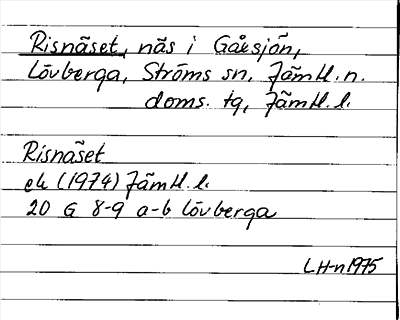 Risnäset, näs i Gåxsjön,
Lövberga, Ströms sn, Jämtl. n.
doms. tg, Jämtl. l.
Risnäset
ek (1974) Jämtl. l.
20 G 8-9 a-b Lövberga
LH-n 1975